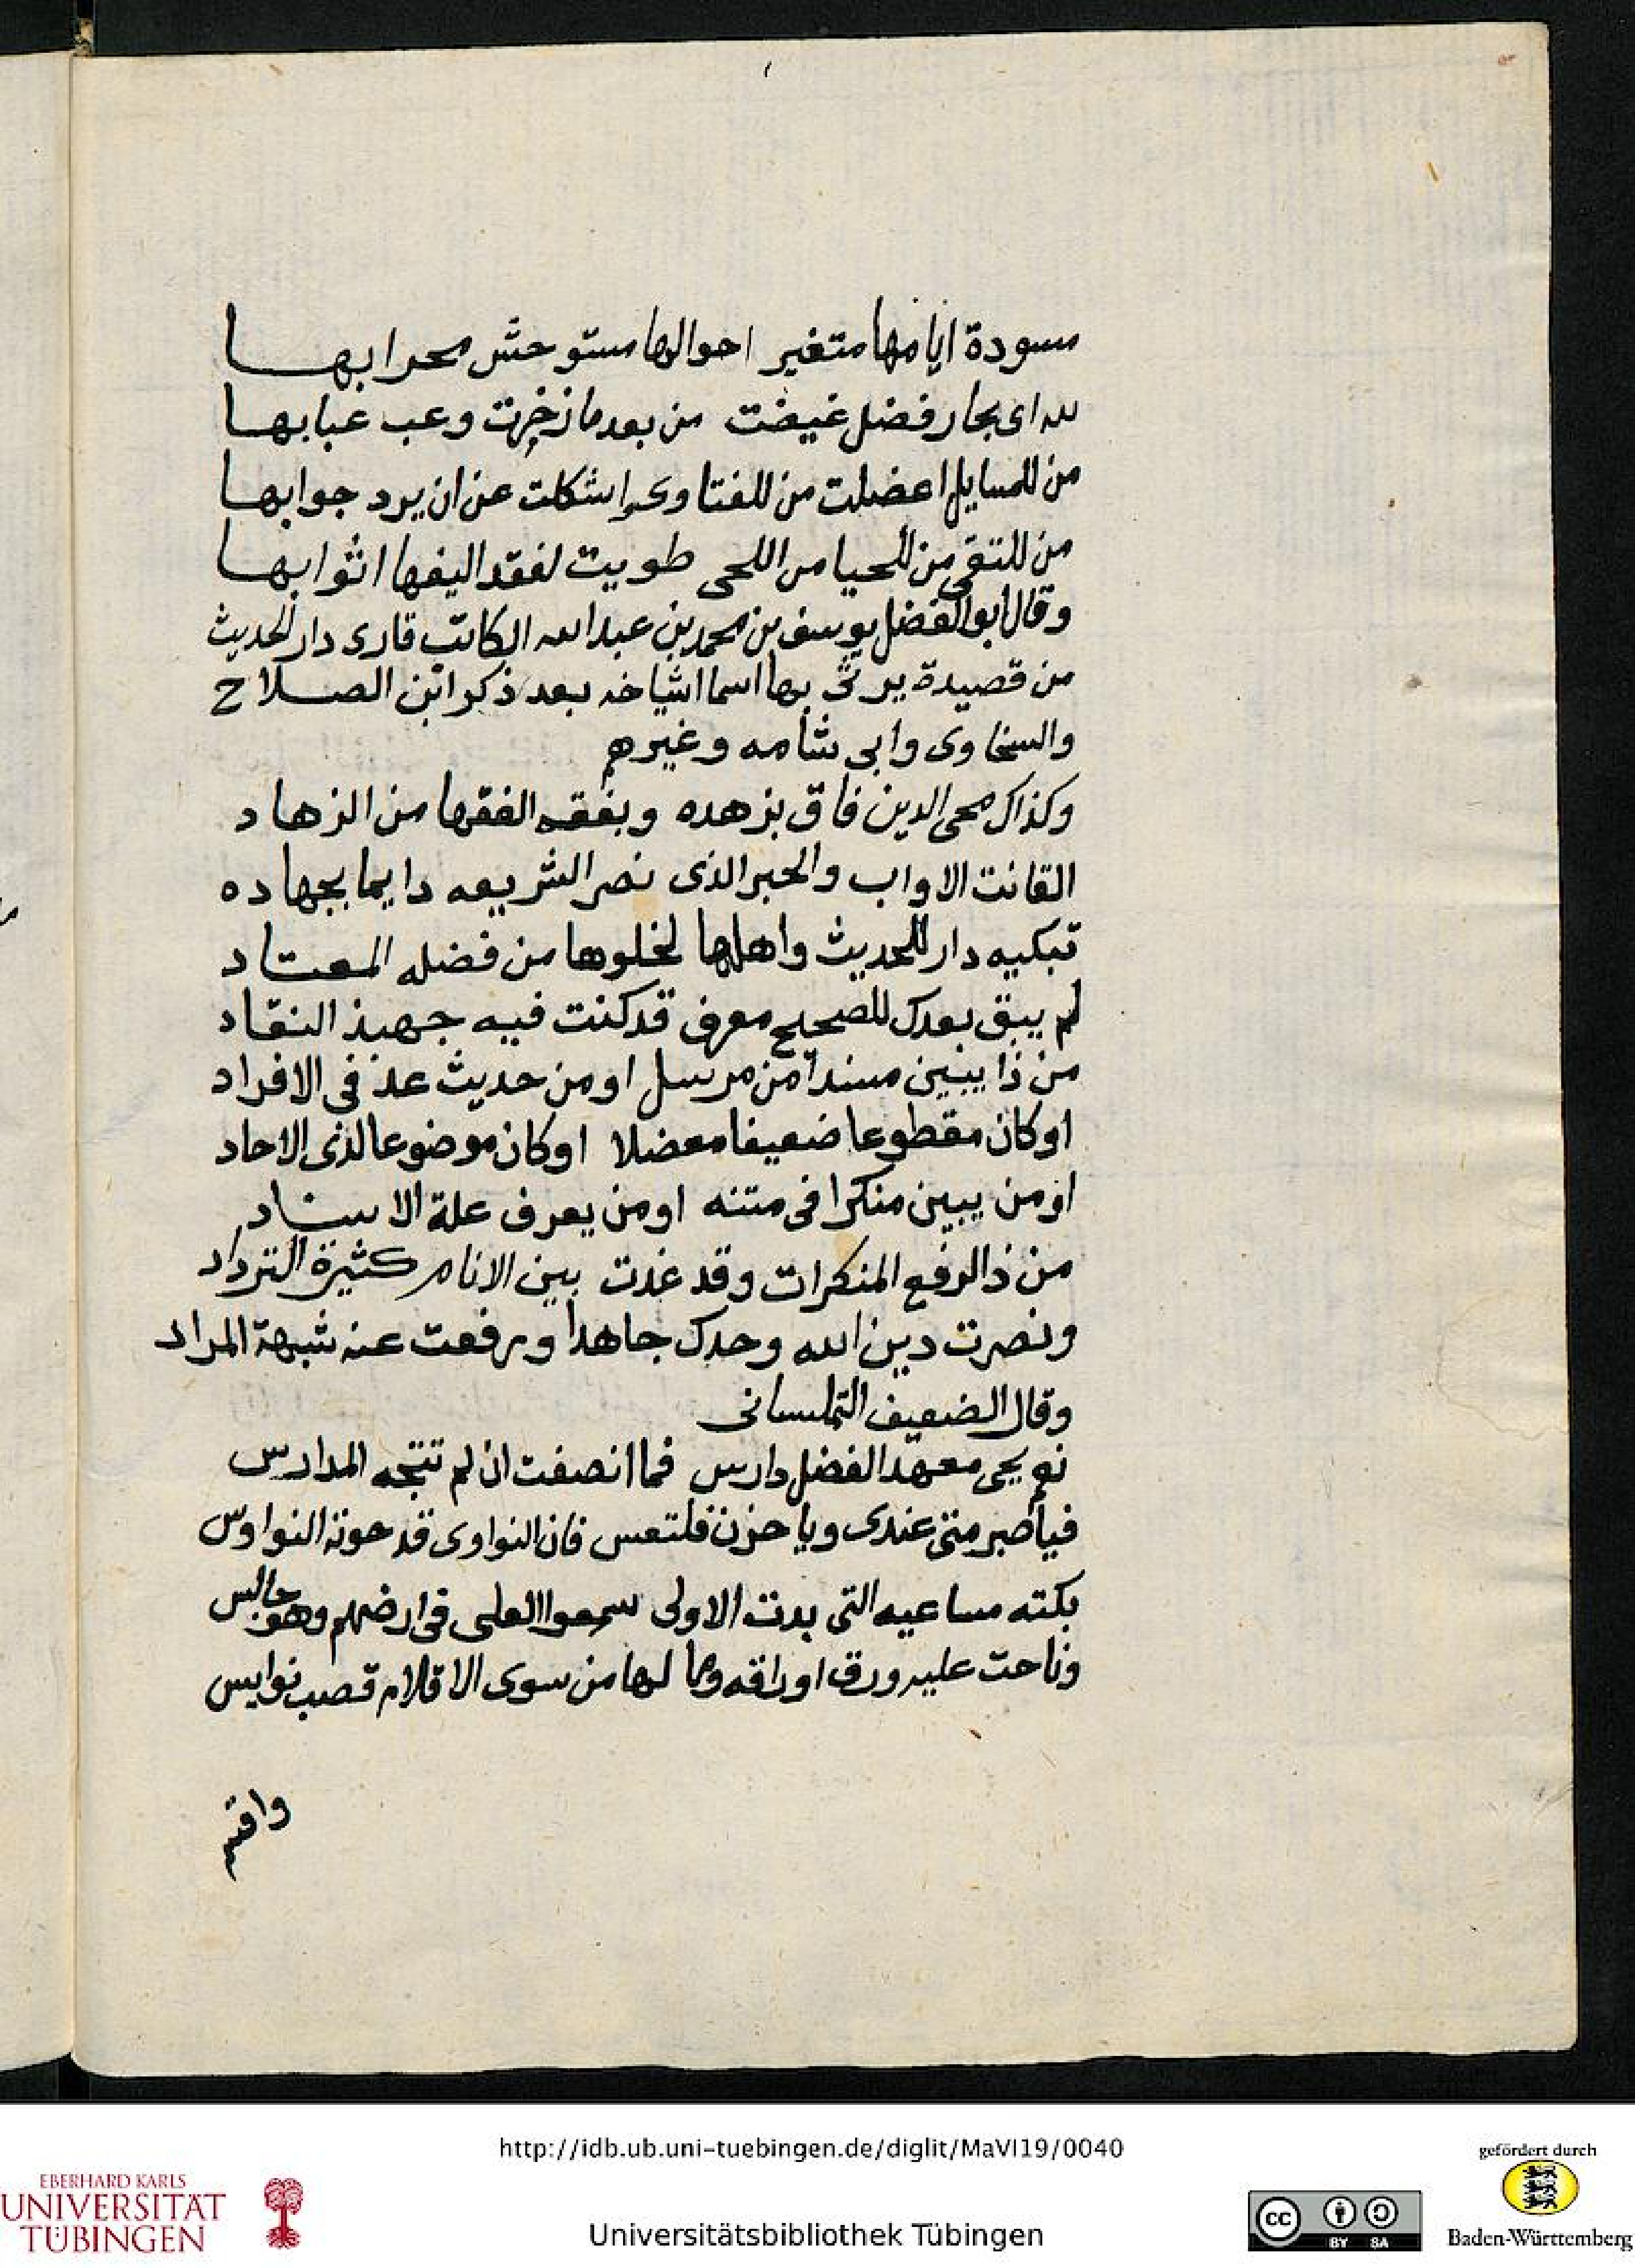 مسودة ايامها متغير احوالها مستوحش محرابها
لله اى بحار فضل غيضت من بعد ما زخرت وعب عبابها
من للمسايل اعضلت من للفتاوى اشكلت عن ان يرد جوابها
من للتقى من للحيا من اللحى طويت لفقد اليفها اثوابها
وقال ابو الفضل يوسف بن محمد بن عبد الله الكاتب قارى دار الحديث
من قصيدة يرثى بها اسما اشياخه بعد ذكر ابن الصلاح
والسخاوى وابى شامه وغيرهم
وكذاك محى الدين فاق بزهده وبفقه الفقها من الزهاد
القانت الاواب والحبر الذى نصر الشريعه دايما بجهاده
تبكيه دار للحديث واهلها لخلوها من فضله المعتاد
لم يبق بعدك للصحيح معرف قد كنت فيه جهبذ النقاد
من ذا يبين مسنداً من مرسل او من حديث عد فى الافراد
او كان مقطوعا ضعيفا معضلا او كان موضوعا لذى الاحاد
او من يبين منكرا فى متنه او من يعرف علة الاسناد
من ذا لرفع المنكرات وقد غدت بين الانام كثيرة الترداد
ونصرت دين الله وحدك جاهداً ورفعت عنه شبهة المراد
وقال الضعيف التلمسانى
نعى يحيى معهد الفضل دارس فما انصفت ان لم تنحه المدارس
فيا صبر مت عندى ويا حزن فلتعس فان النواوى قد حوته النواوس
بكته مساعيه التى بدت الاولى سمعوا العلى فى ارضهم وهو جالس
وناحت عليه ورق اوراقه وما لها من سوى الاقلام قصب نوايس
http://idb.ub.uni-tuebingen.de/diglit/MaVI19/0040
Universitätsbibliothek Tübingen
EBERHARD KARLS
UNIVERSITÄT
TÜBINGEN
cc BY SA
gefördert durch
Baden-Württemberg